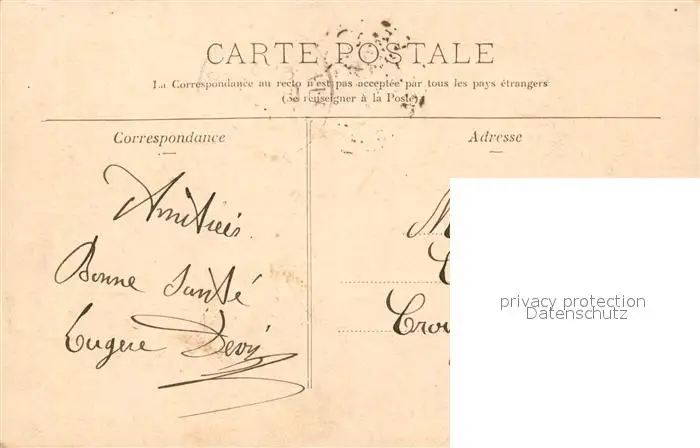 CARTE POSTALE
La Correspondance au recto n'est pas acceptée par tous les pays étrangers
(Se renseigner à la Poste)
Correspondance
Adresse
Amitiés
Bonne Santé
Eugène
privacy protection
Datenschutz